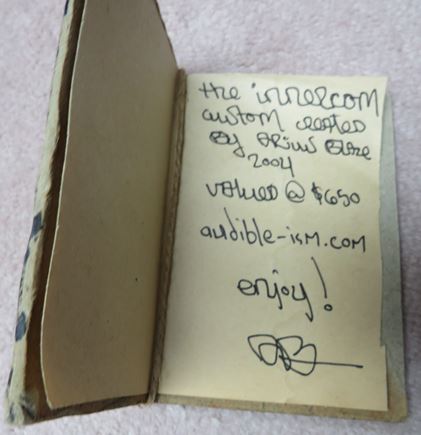 the innercom
custom created
By Blaze
2004
valued @ $650
audible-ism.com
enjoy!